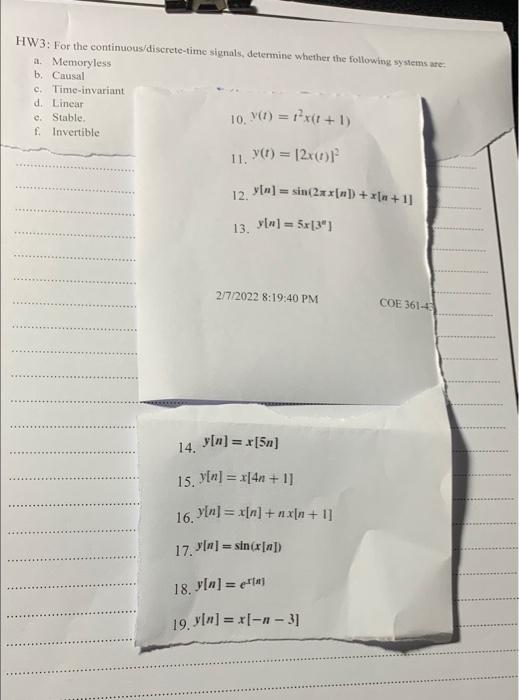 HW3: For the continuous/discrete-time signals, determine whether the following systems are:
a. Memoryless
b. Causal
c. Time-invariant
d. Linear
e. Stable.
f. Invertible
10. y(t) = t²x(t + 1)
11. y(t) = [2x(t)]²
12. y[n] = sin(2πx[n]) + x[n + 1]
13. y[n] = 5x[3ⁿ]
2/7/2022 8:19:40 PM
COE 361-43
14. y[n] = x[5n]
15. y[n] = x[4n + 1]
16. y[n] = x[n] + nx[n + 1]
17. y[n] = sin(x[n])
18. y[n] = eˣ[ⁿ]
19. y[n] = x[−n − 3]